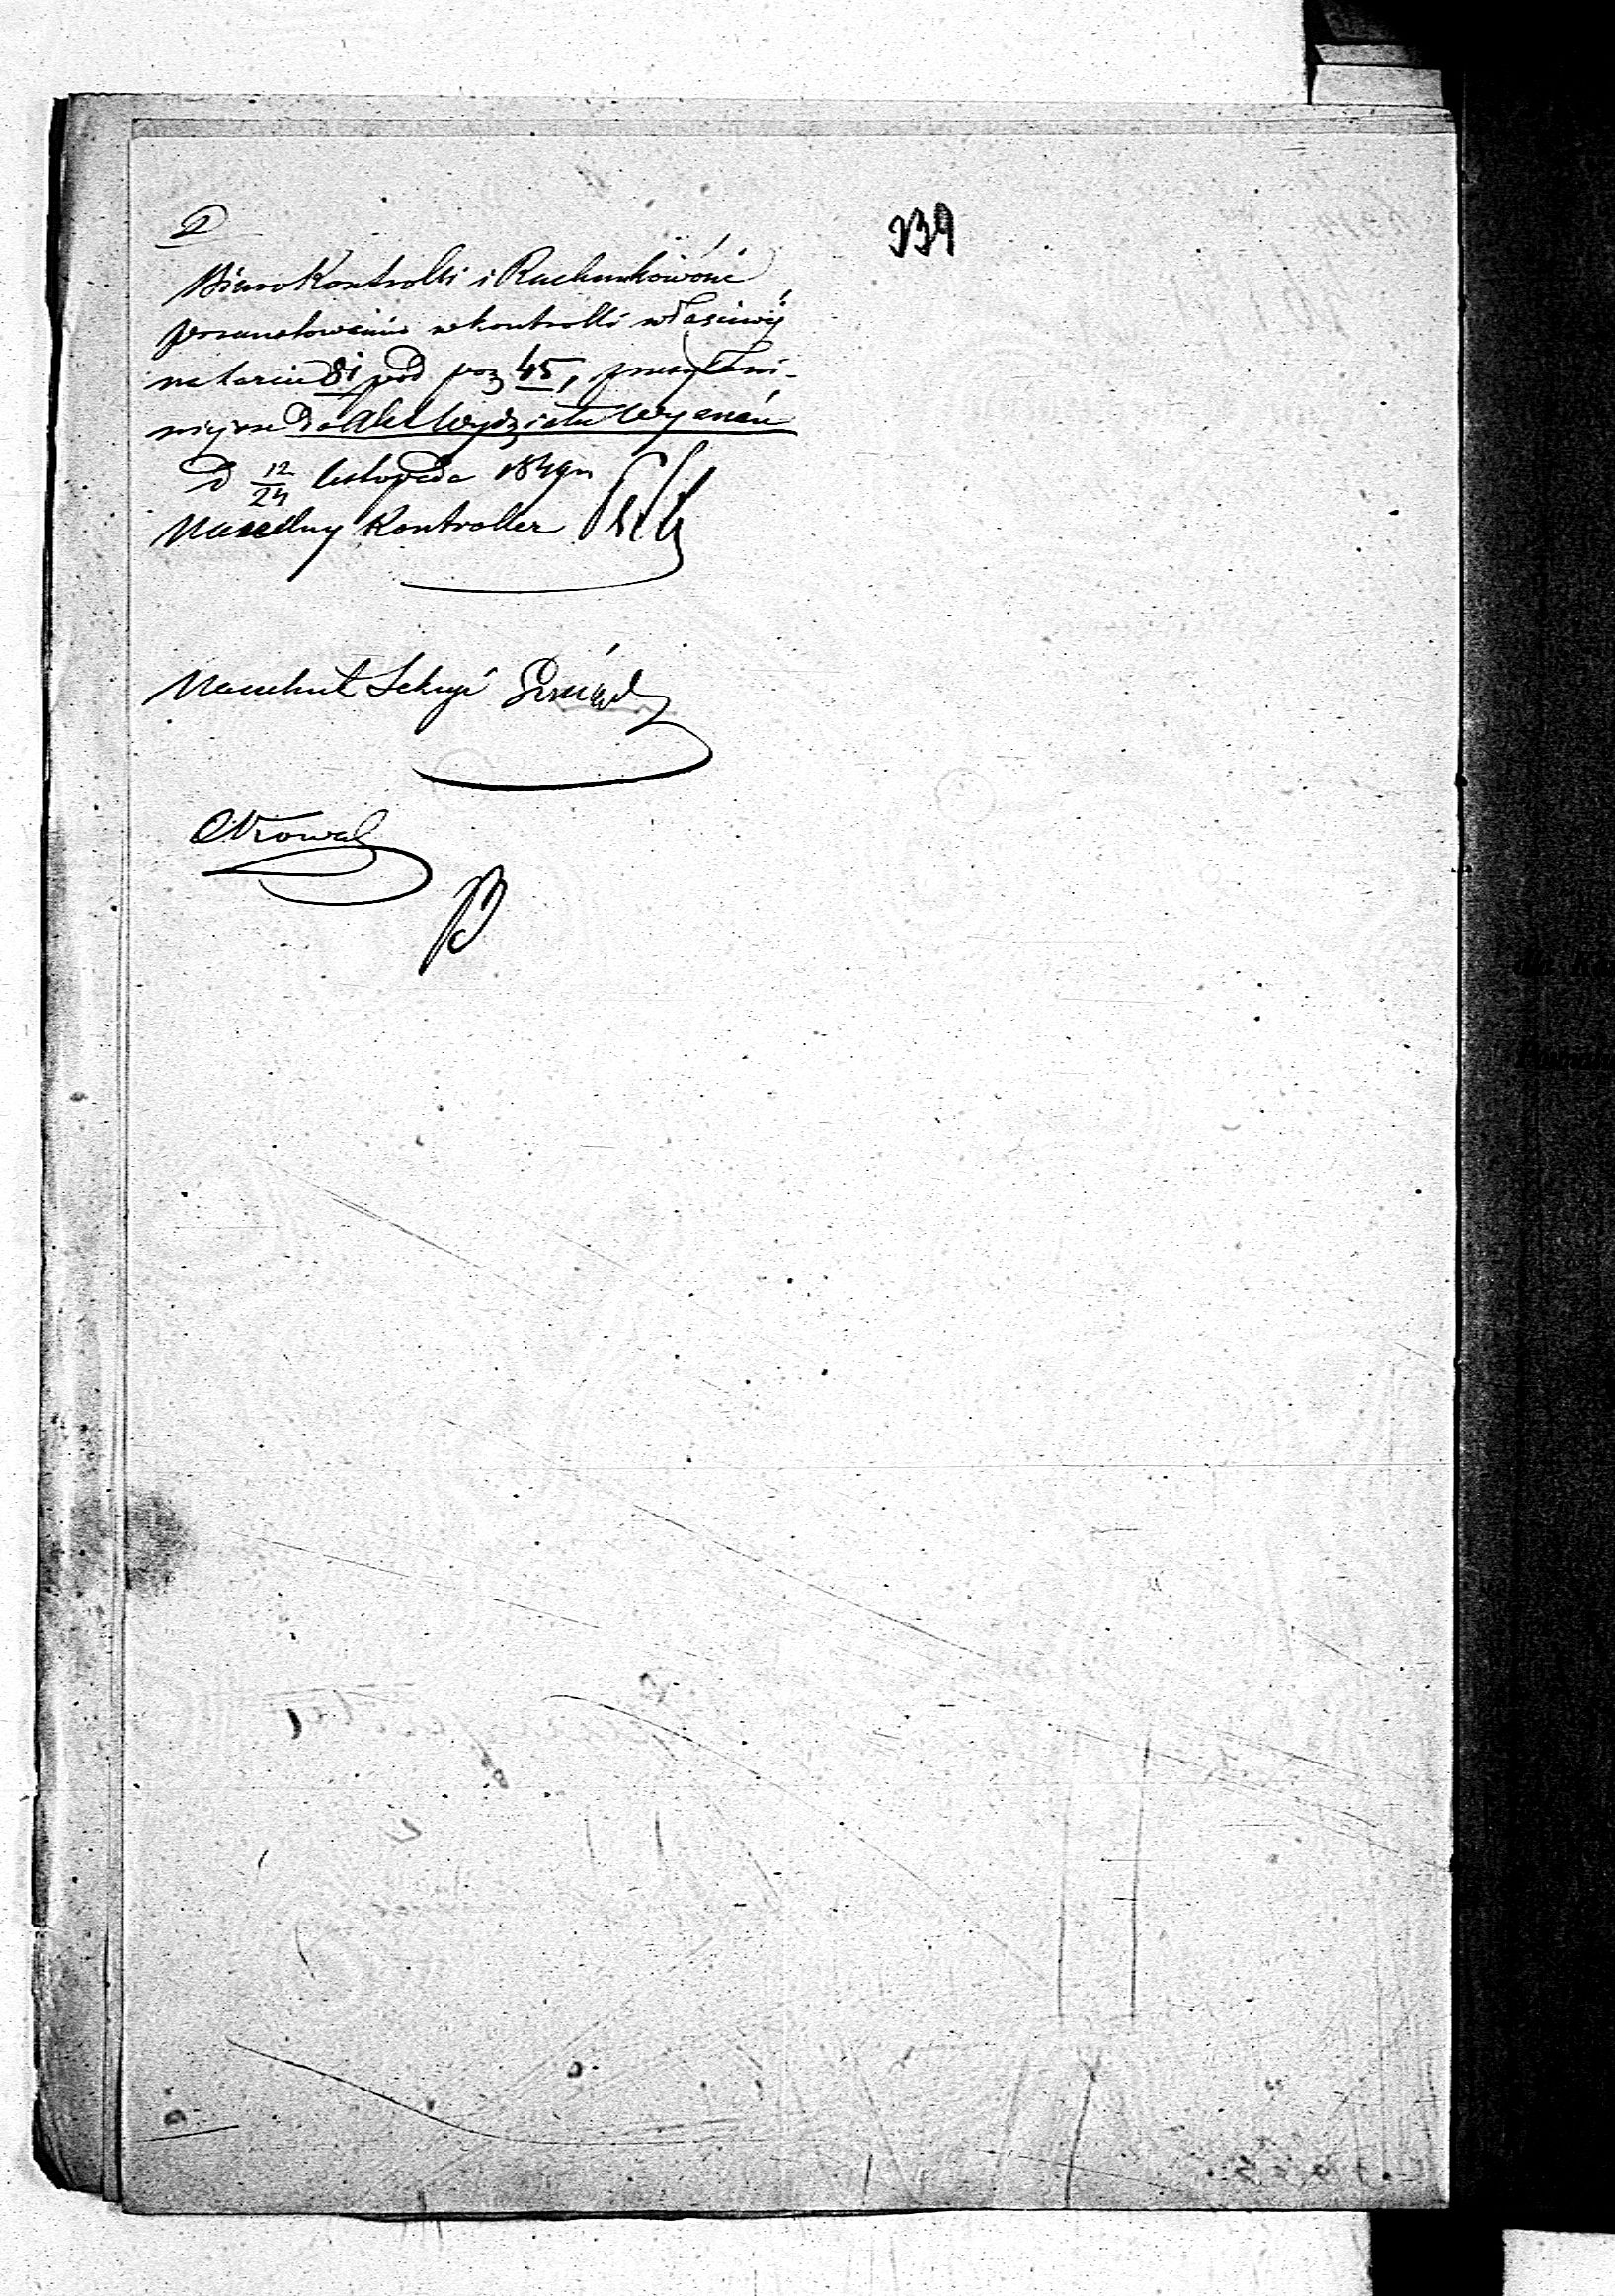 339
Biuro Kontrolli i Rachunkowości
pozanotowaniu w kontrolli właściwéj
na karcie 81 pod poz 45, przesyła ni-
niejsze do Akt Wydziału Wyznań
D 12/24 listopada 1849 r
Naczelny Kontroller
Naczelnik Sekcyi